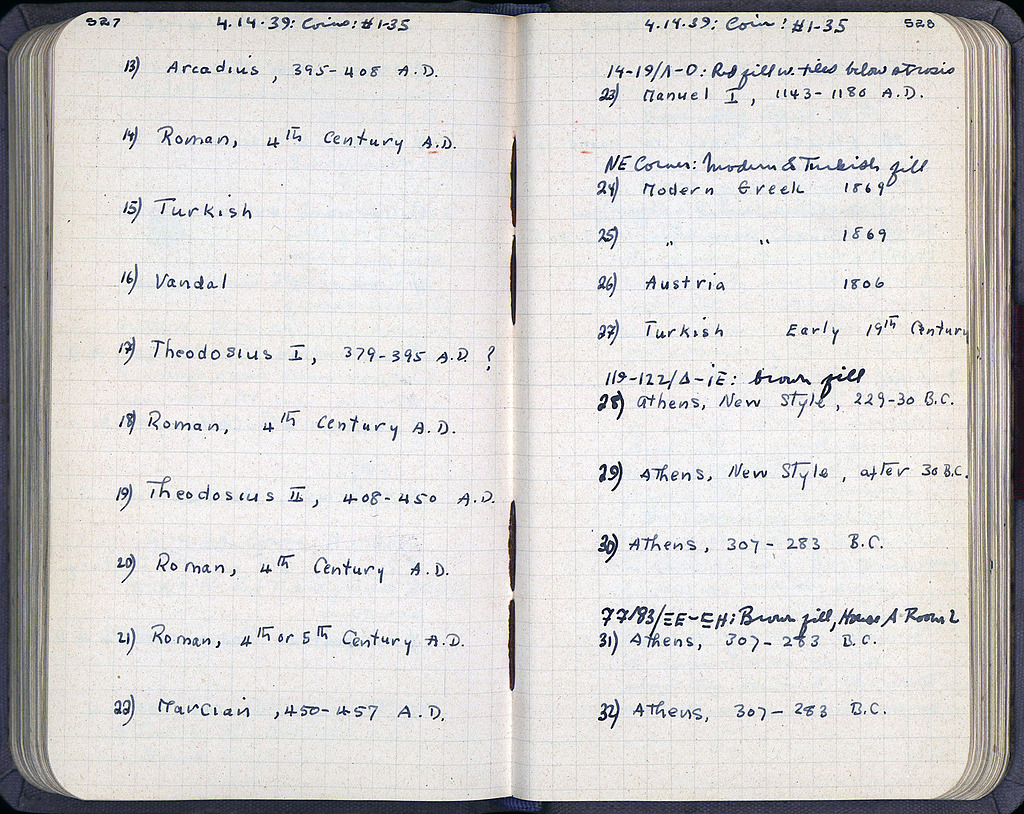 527
4.14.39: Coins: #1-35
13) Arcadius, 395-408 A.D.
14) Roman, 4th Century A.D.
15) Turkish
16) Vandal
17) Theodosius I, 379-395 A.D. ?
18) Roman, 4th Century A.D.
19) Theodosius II, 408-450 A.D.
20) Roman, 4th Century A.D.
21) Roman, 4th or 5th Century A.D.
22) Marcian, 450-457 A.D.
4.14.39: Coin: #1-35
528
14-19/Λ-O: Red fill w. tiles below strosis
23) Manuel I, 1143-1180 A.D.
NE Corner: Modern & Turkish fill
24) Modern Greek 1869
25) " " 1869
26) Austria 1806
27) Turkish Early 19th Century
119-122/Δ-ΙE: brown fill
28) Athens, New Style, 229-30 B.C.
29) Athens, New Style, after 30 B.C.
30) Athens, 307-283 B.C.
77/83/ΞE-ΞH: Brown fill, House A Room 2
31) Athens, 307-283 B.C.
32) Athens, 307-283 B.C.